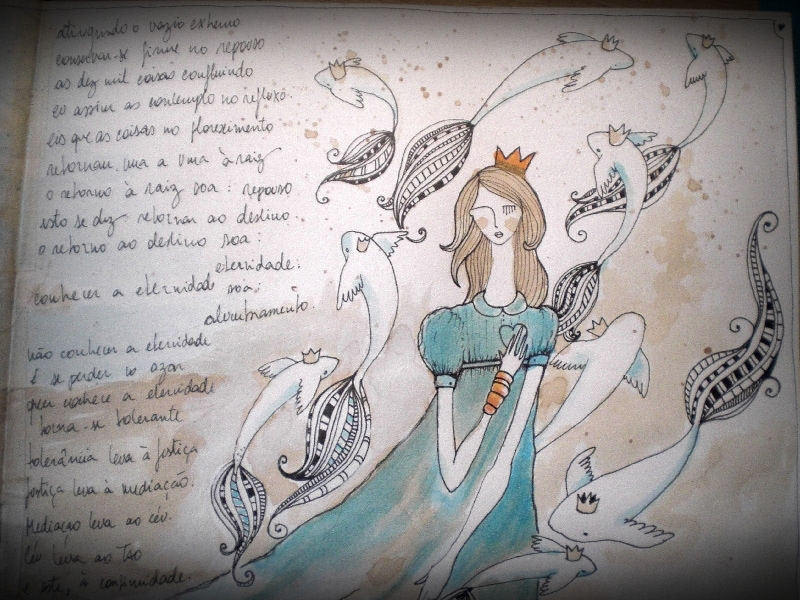 atingindo o vazio extremo
conservar-se firme no repouso
as dez mil coisas confluindo
eu assim as contemplo no refluxo.
eis que as coisas no florescimento
retornam uma a uma à raiz
o retorno à raiz soa: repouso
isto se diz retornar ao destino.
o retorno ao destino soa:
eternidade.
conhecer a eternidade soa:
alumbramento.
não conhecer a eternidade
é se perder no azar
quem conhece a eternidade
torna-se tolerante
tolerância leva à justiça
justiça leva à mediação.
Mediação leva ao céu.
Céu leva ao TAO
e este, à continuidade.